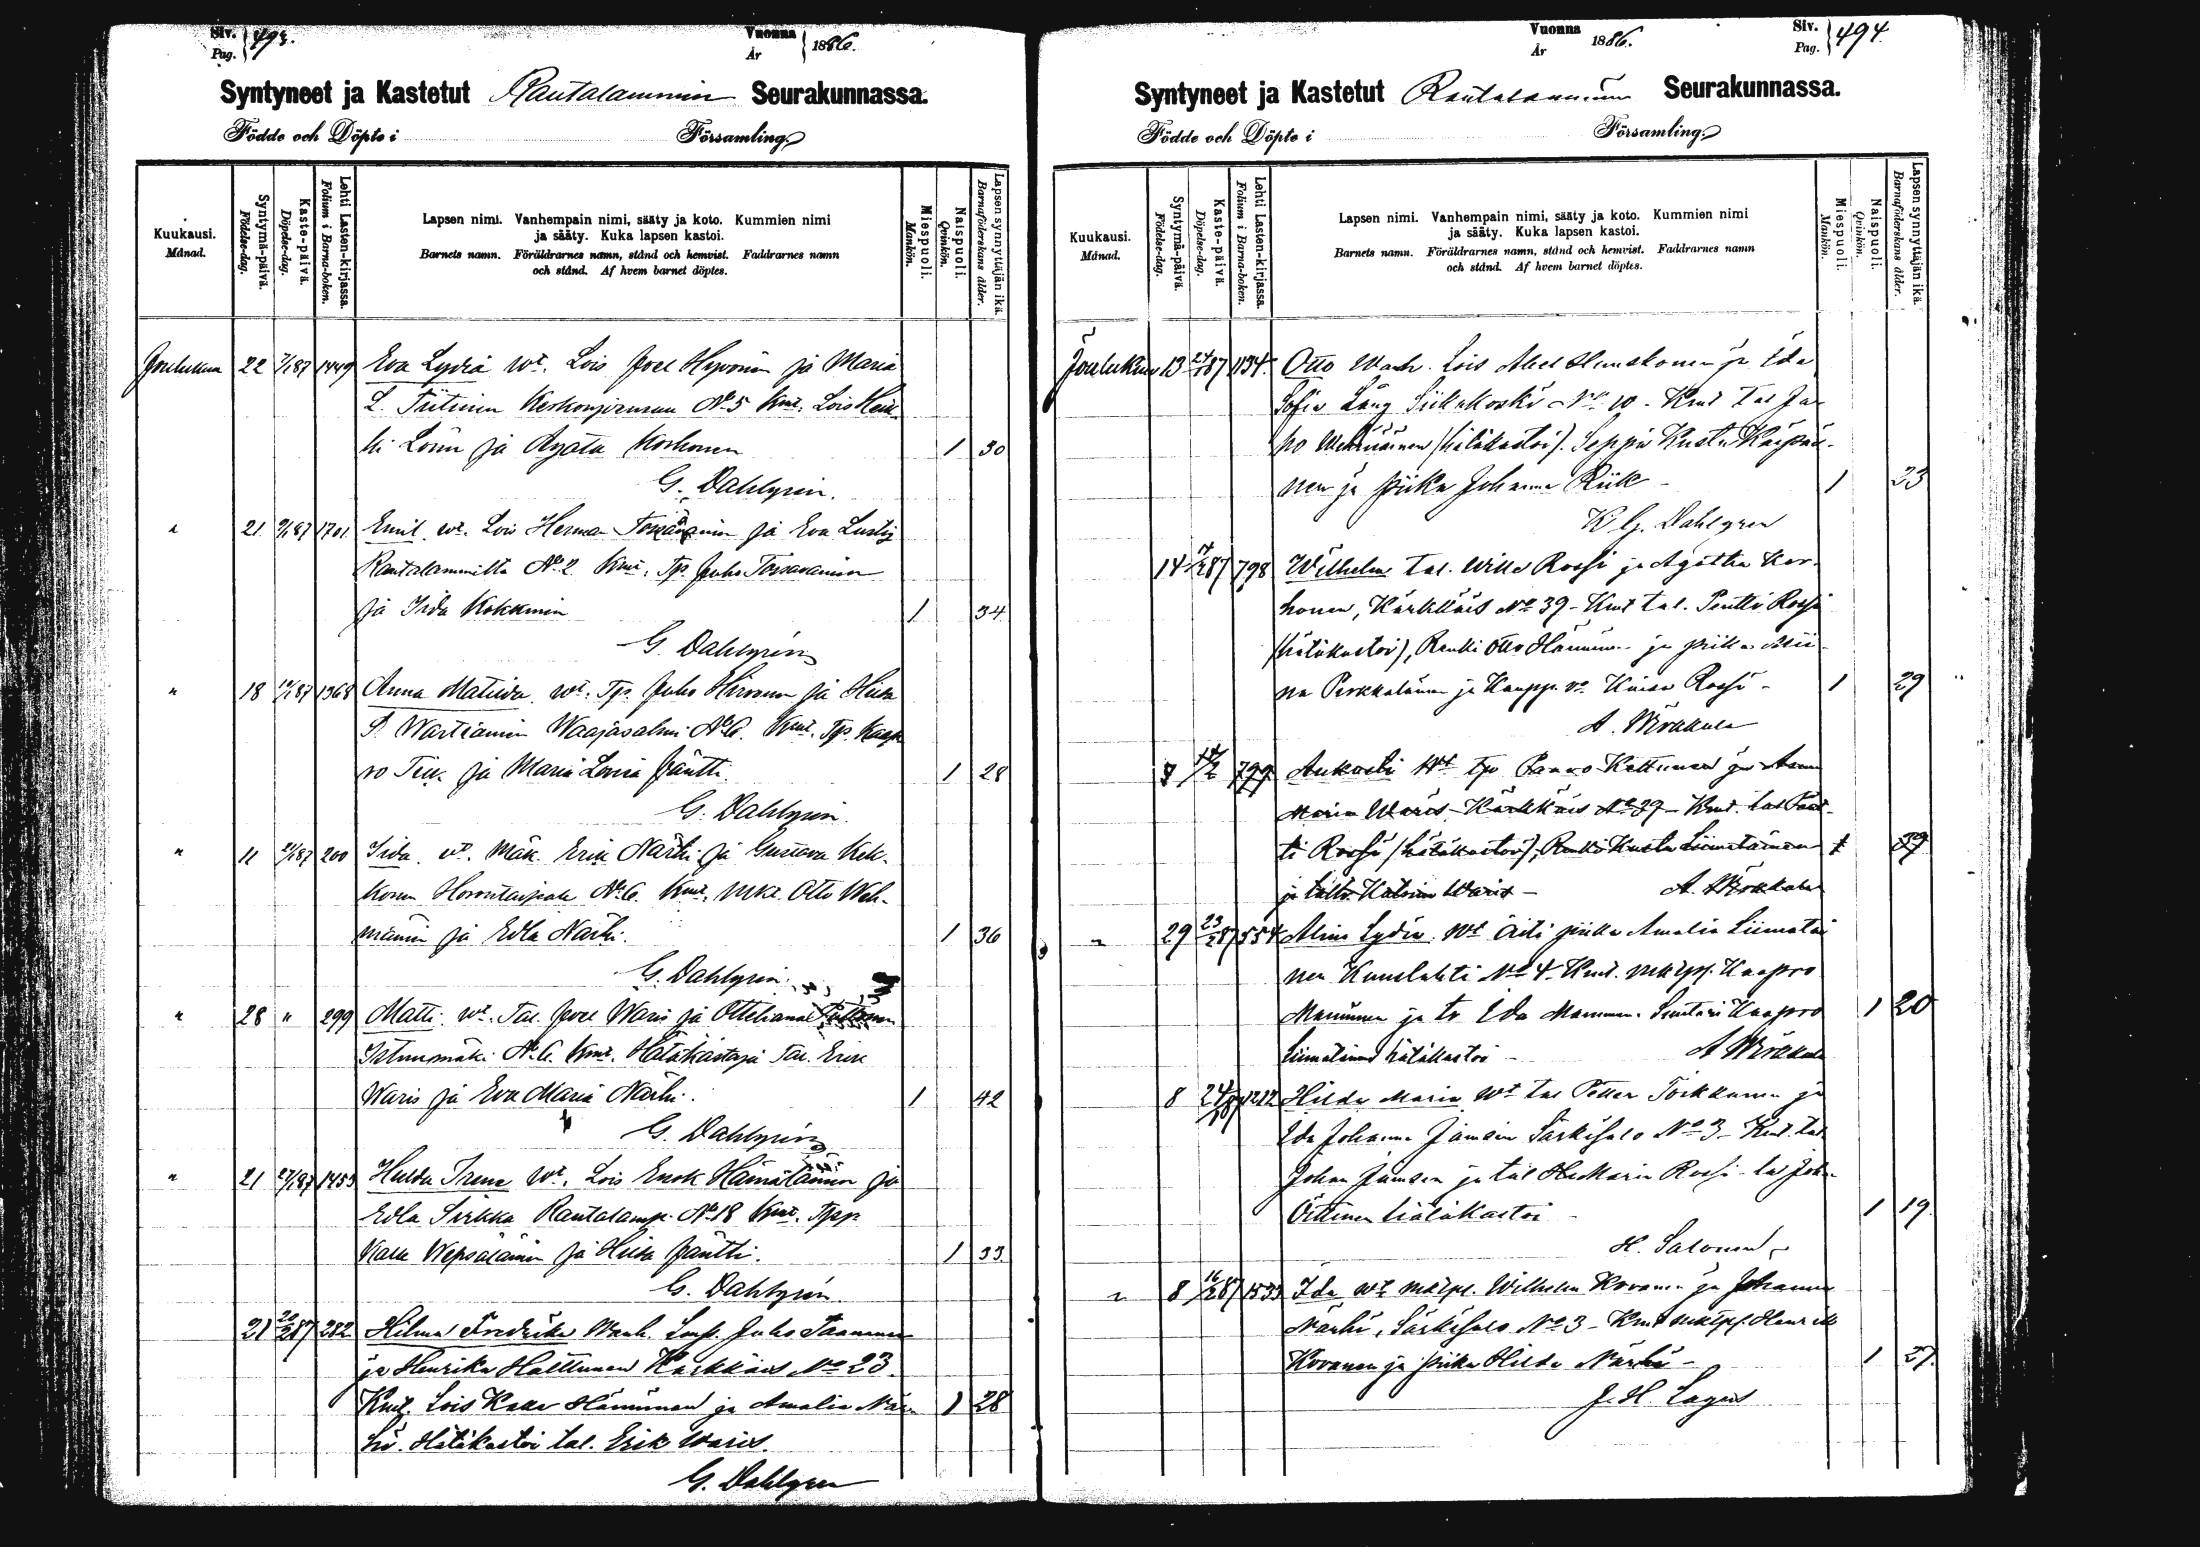 Siv. Pag. 493.
Vuonna År 1886.
Syntyneet ja Kastetut Rautalammin Seurakunnassa.
Födde och Döpte i Församling.
Kuukausi. Månad.
Syntymä-päivä. Födelse-dag.
Kaste-päivä. Döpelse-dag.
Lehti Lasten-kirjassa. Folium i Barna-boken.
Lapsen nimi. Vanhempain nimi, sääty ja koto. Kummien nimi
ja sääty. Kuka lapsen kastoi.
Barnets namn. Föräldrarnes namn, stånd och hemvist. Faddrarnes namn
och stånd. Af hvem barnet döptes.
Miespuoli. Mankön.
Naispuoli. Qvinkön.
Lapsen synnyttäjän ikä. Barnaföderskans ålder.
Joulukuu 22 7/187 1449 Eva Lydia wt. Lois Joel Hyvönen ja Maria
L. Tiitinen Kerkonjoensuu No 5 Kmt. Lois Heik-
ki Lonin ja Agata Korhonen 1 30
G. Dahlgrén.
" 21 9/187 1701 Emil wt. Lois Herman Tossavainen ja Eva Lustig
Rautalammilta No 2 Kmt. Tp. Juho Tossavainen
ja Iida Kokkonen 1 34
G. Dahlgrén
" 18 /187 1368 Anna Matilda wt. Tp. Juho Hirvonen ja Hiska
S. Wartiainen Waajasalmi No 6. Kmt. Tp. Kaap-
ro ja Maria Lovisa Jäntti. 1 28
G. Dahlgrén.
" 11 21/187 200 Iida wt. Mäk. Erik Närhi ja Gustava Kek-
konen Horontaipale No 6. Kmt. Mkt. Otto Weh-
mäinen ja Edla Närhi. 1 36
G. Dahlgrén.
" 28 " 299 Matti wt. Tal. Joel Waris ja Ottiliana
Istunmäki No 6. Kmt. Hätäkastaja Tal. Erik
Waris ja Eva Maria Närhi. 1 42
G. Dahlgrén
" 21 27/187 1453 Hulda Irene wt. Lois Enok Hämäläinen ja
Edla Sirkka Rautalamp. No 18 Kmt. Tpp.
Kalle Wepsäläinen ja Hiska Jäntti. 1 33.
G. Dahlgrén.
21 20/287 282 Hilma Fredrika Wanh. Juho Taavinen
ja Henrika Halttunen Kärkkäis No 23.
Kmt. Lois Kalle Hänninen ja Amalia När- 1 28
hi. Hätäkastoi tal. Erik Waris.
G. Dahlgren
Vuonna År 1886.
Siv. Pag. 494.
Syntyneet ja Kastetut Rautalammin Seurakunnassa.
Födde och Döpte i Församling.
Kuukausi. Månad.
Syntymä-päivä. Födelse-dag.
Kaste-päivä. Döpelse-dag.
Lehti Lasten-kirjassa. Folium i Barna-boken.
Lapsen nimi. Vanhempain nimi, sääty ja koto. Kummien nimi
ja sääty. Kuka lapsen kastoi.
Barnets namn. Föräldrarnes namn, stånd och hemvist. Faddrarnes namn
och stånd. Af hvem barnet döptes.
Miespuoli. Mankön.
Naispuoli. Qvinkön.
Lapsen synnyttäjän ikä. Barnaföderskans ålder.
Joulukuu 13 24/187 1134 Otto Wanh. Lois Abel Hinskonen ja Ida
Sofia Lång Siikakoski No 10. Kmt Tal Jaa-
ko (hätäkastoi). Seppä Kusta Karpai-
nen ja piika Johanna Riik - 1 33
K G. Dahlgren
14 /287 798 Wilhelm tal. Wille Rossi ja Agatha Kor-
honen, Kärkkäis No 39 - Kmt tal. Pentti Rossi
(hätäkastoi), Renki Otto Hänninen ja piika Mii-
na Parkkalainen ja Kaupp. va Kaisa Rossi - 1 29
A. Wäkkala
9 14/2 799 Aukusti Wt tp Paavo Kettunen ja Anna
Maria Waris - Kärkkäis No 39 - Kmt. tal Pent-
ti Rossi (hätäkastoi), Renki Kusta Liimatainen 1 39
ja tytto. Katrina Waris - A. Wäkkala
" 29 23/287 554 Alina Lydia Wt Äiti piika Amalia Liimatai-
nen Kuuslahti No 4. Kmt. mktps. Kaapro
Manninen ja tr Ida Manninen. Suutari Kaapro 1 20
Liimatainen hätäkastoi - A Wäkkala
8 24/287 1212 Hilda Maria Wt tal Petter Törkkönen ja
Ida Johanna Jämsen Särkisalo No 3 - Kmt. tal
Johan Jämsen ja tal Maria Rossi - tal Joh.
Oittinen hätäkastoi - 1 19.
H. Salonen
" 8 16/287 1533 Ida wt mäkps. Wilhelm Kovanen ja Johanna
Närhi, Särkisalo No 3 - Kmt mktps. Henrik
Kovanen ja piika Hilda Närhi - 1 27.
J. H. Lagus